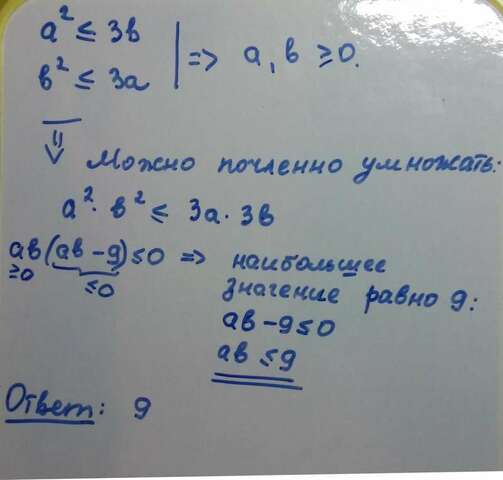 a² ≤ 3в
в² ≤ 3a | => a, в ≥ 0.
Можно почленно умножать:
a² · в² ≤ 3a · 3в
aв(aв - 9) ≤ 0 => наибольшее
≥0 ≤0
значение равно 9:
aв - 9 ≤ 0
aв ≤ 9
Ответ: 9